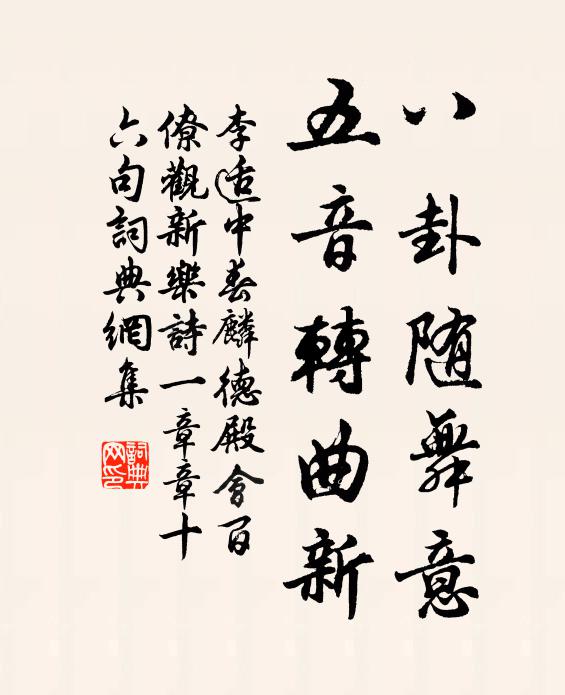 八卦随舞意
五音轉曲新
李适中春麟德殿會百
僚觀新樂詩一章章十
六句詞典網集
詞典
网印